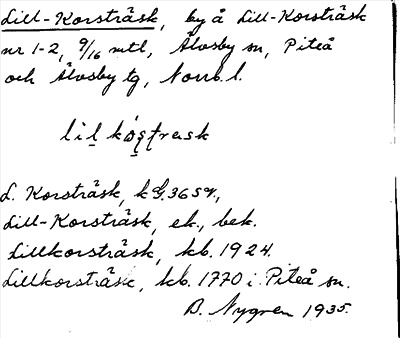 Lill-Korsträsk, by å Lill-Korsträsk
nr 1-2, 9/16 mtl, Älvsby sn, Piteå
och Älvsby tg, Norrb. l.
L. Korsträsk, kG.
Lill-Korsträsk, ek., bek.
Lillkorsträsk, kb. 1924.
Lillkorsträsk, kb. 1770 i Piteå sn.
B. Nygren 1935.